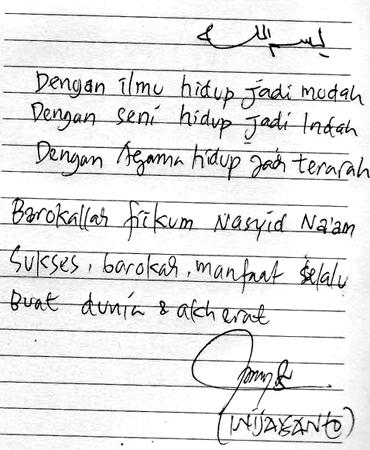 بسم الله
Dengan ilmu hidup jadi mudah
Dengan seni hidup jadi Indah
Dengan Agama hidup jadi terarah
Barokallah fiikum Nasyid Na'am
Sukses, barokah, manfaat selalu
Buat dunia & akherat
(WIJAYANTO)